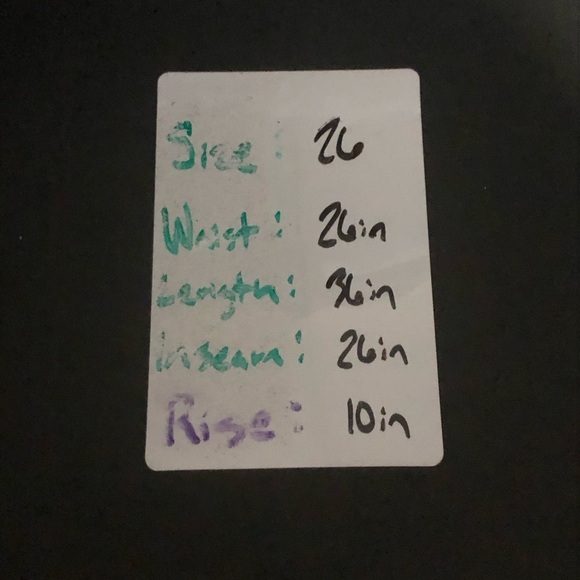 Size: 26
Waist: 26in
Length: 36in
Inseam: 26in
Rise: 10in